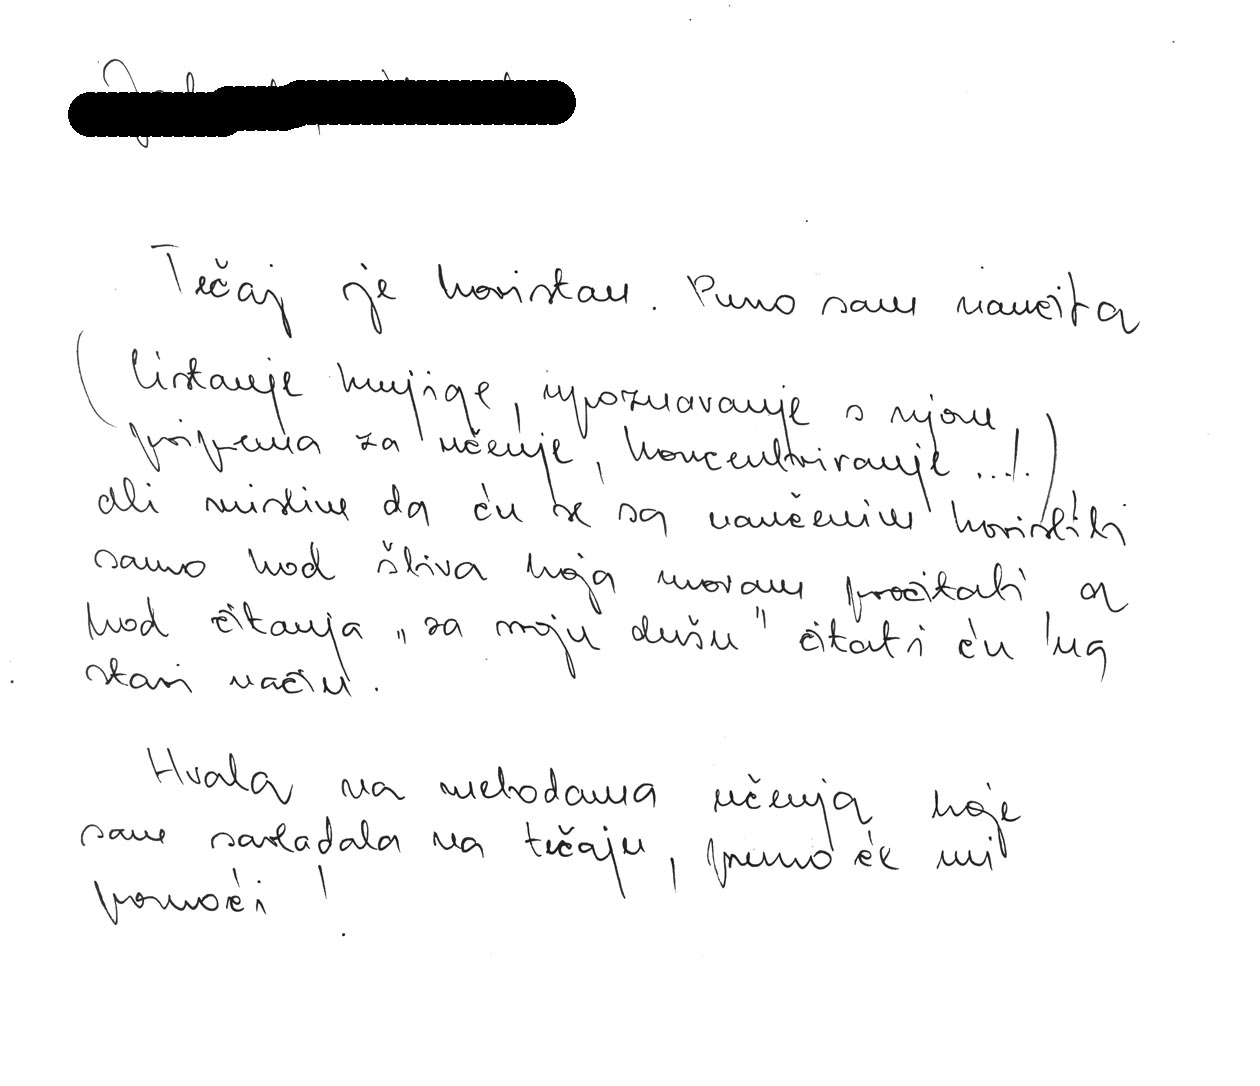 Tečaj je koristan. Puno sam naučila
(listanje knjige, upoznavanje s njom,
priprema za učenje, koncentriranje...!)
ali mislim da ću se sa naučenim koristiti
samo kod štiva koja moram pročitati, a
kod čitanja "za moju dušu" čitati ću na
stari način.
Hvala na metodama učenja koje
sam savladala na tečaju, puno će mi
pomoći!